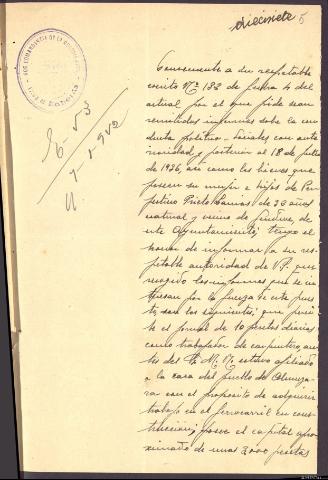 diecisiete 5
Consecuente a su respetable
escrito Nº 132 de fecha 4 del
actual por el que pide sean
remitidos informes sobre la con-
ducta politico-sociales con ante
rioridad y posterior al 18 de julio
de 1936, asi como los bienes que
poseen su mujer e hijos de
Prieto Ramos de 32 años
natural y vecino de
de este Ayuntamiento; tengo el
honor de informar a su res-
petable autoridad de V.P. que
recogido los informes que se in-
teresan por la fuerza de este pues-
to, son los siguientes; que
el jornal de 10 pesetas diarias
como trabajador de carpintero, an-
tes del G. M. N. estuvo afiliado
a la casa del pueblo de
con el proposito de adquirir
trabajo en el ferrocarril en cons-
truccion; posee el capital apro-
ximado de unas 3.000 pesetas